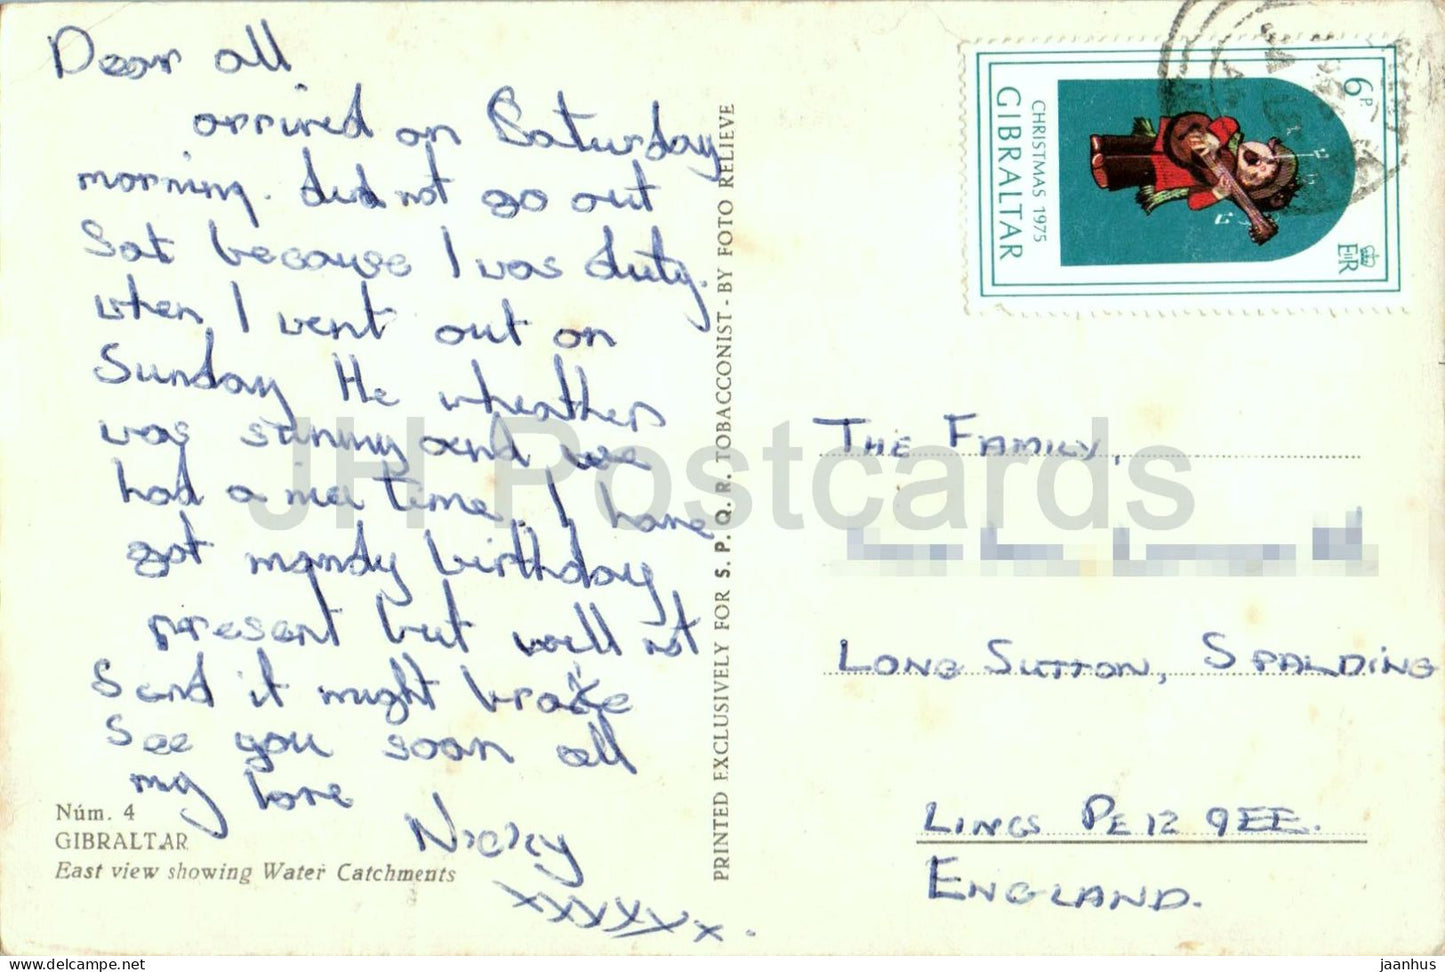 Dear all
arrived on Saturday
morning. did not go out
Sat because I was duty.
when I went out on
Sunday He wheathers
was sunny and we
had a nice time. I have
got mandy birthday
present but will not
Send it might brake
See you soon all
my love
Nicky
xxxxxxx.
Núm. 4
GIBRALTAR
East view showing Water Catchments
PRINTED EXCLUSIVELY FOR S. P. Q. R. TOBACCONIST - BY FOTO RELIEVE
6P
EIIR
CHRISTMAS 1975
GIBRALTAR
THE FAMILY,
LONG SUTTON, SPALDING
LINGS PE12 9EE.
ENGLAND.
JH Postcards
hippostcard.com
jaanhus